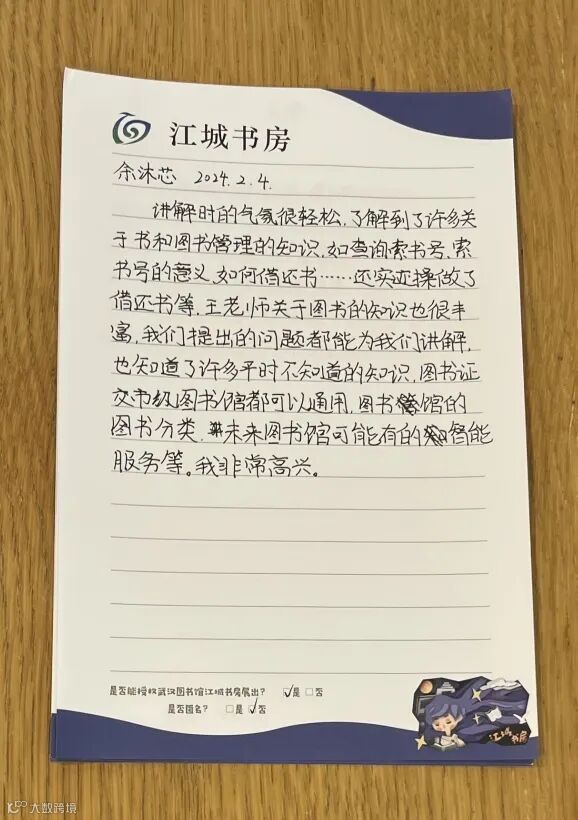 江城书房
余沐芯 2024.2.4.
讲解时的气氛很轻松,了解到了许多关
于书和图书管理的知识,如查询索书号、索
书号的意义、如何借还书……还实操做了
借还书等,王老师关于图书的知识也很丰
富,我们提出的问题都能为我们讲解,
也知道了许多平时不知道的知识,图书证
市级图书馆都可以通用,图书馆的
图书分类,未来图书馆可能有的智能
服务等。我非常高兴。
是否能授权武汉图书馆江城书房展出? ☑是 □否
是否匿名? □是 ☑否
江城书房
大数跨境